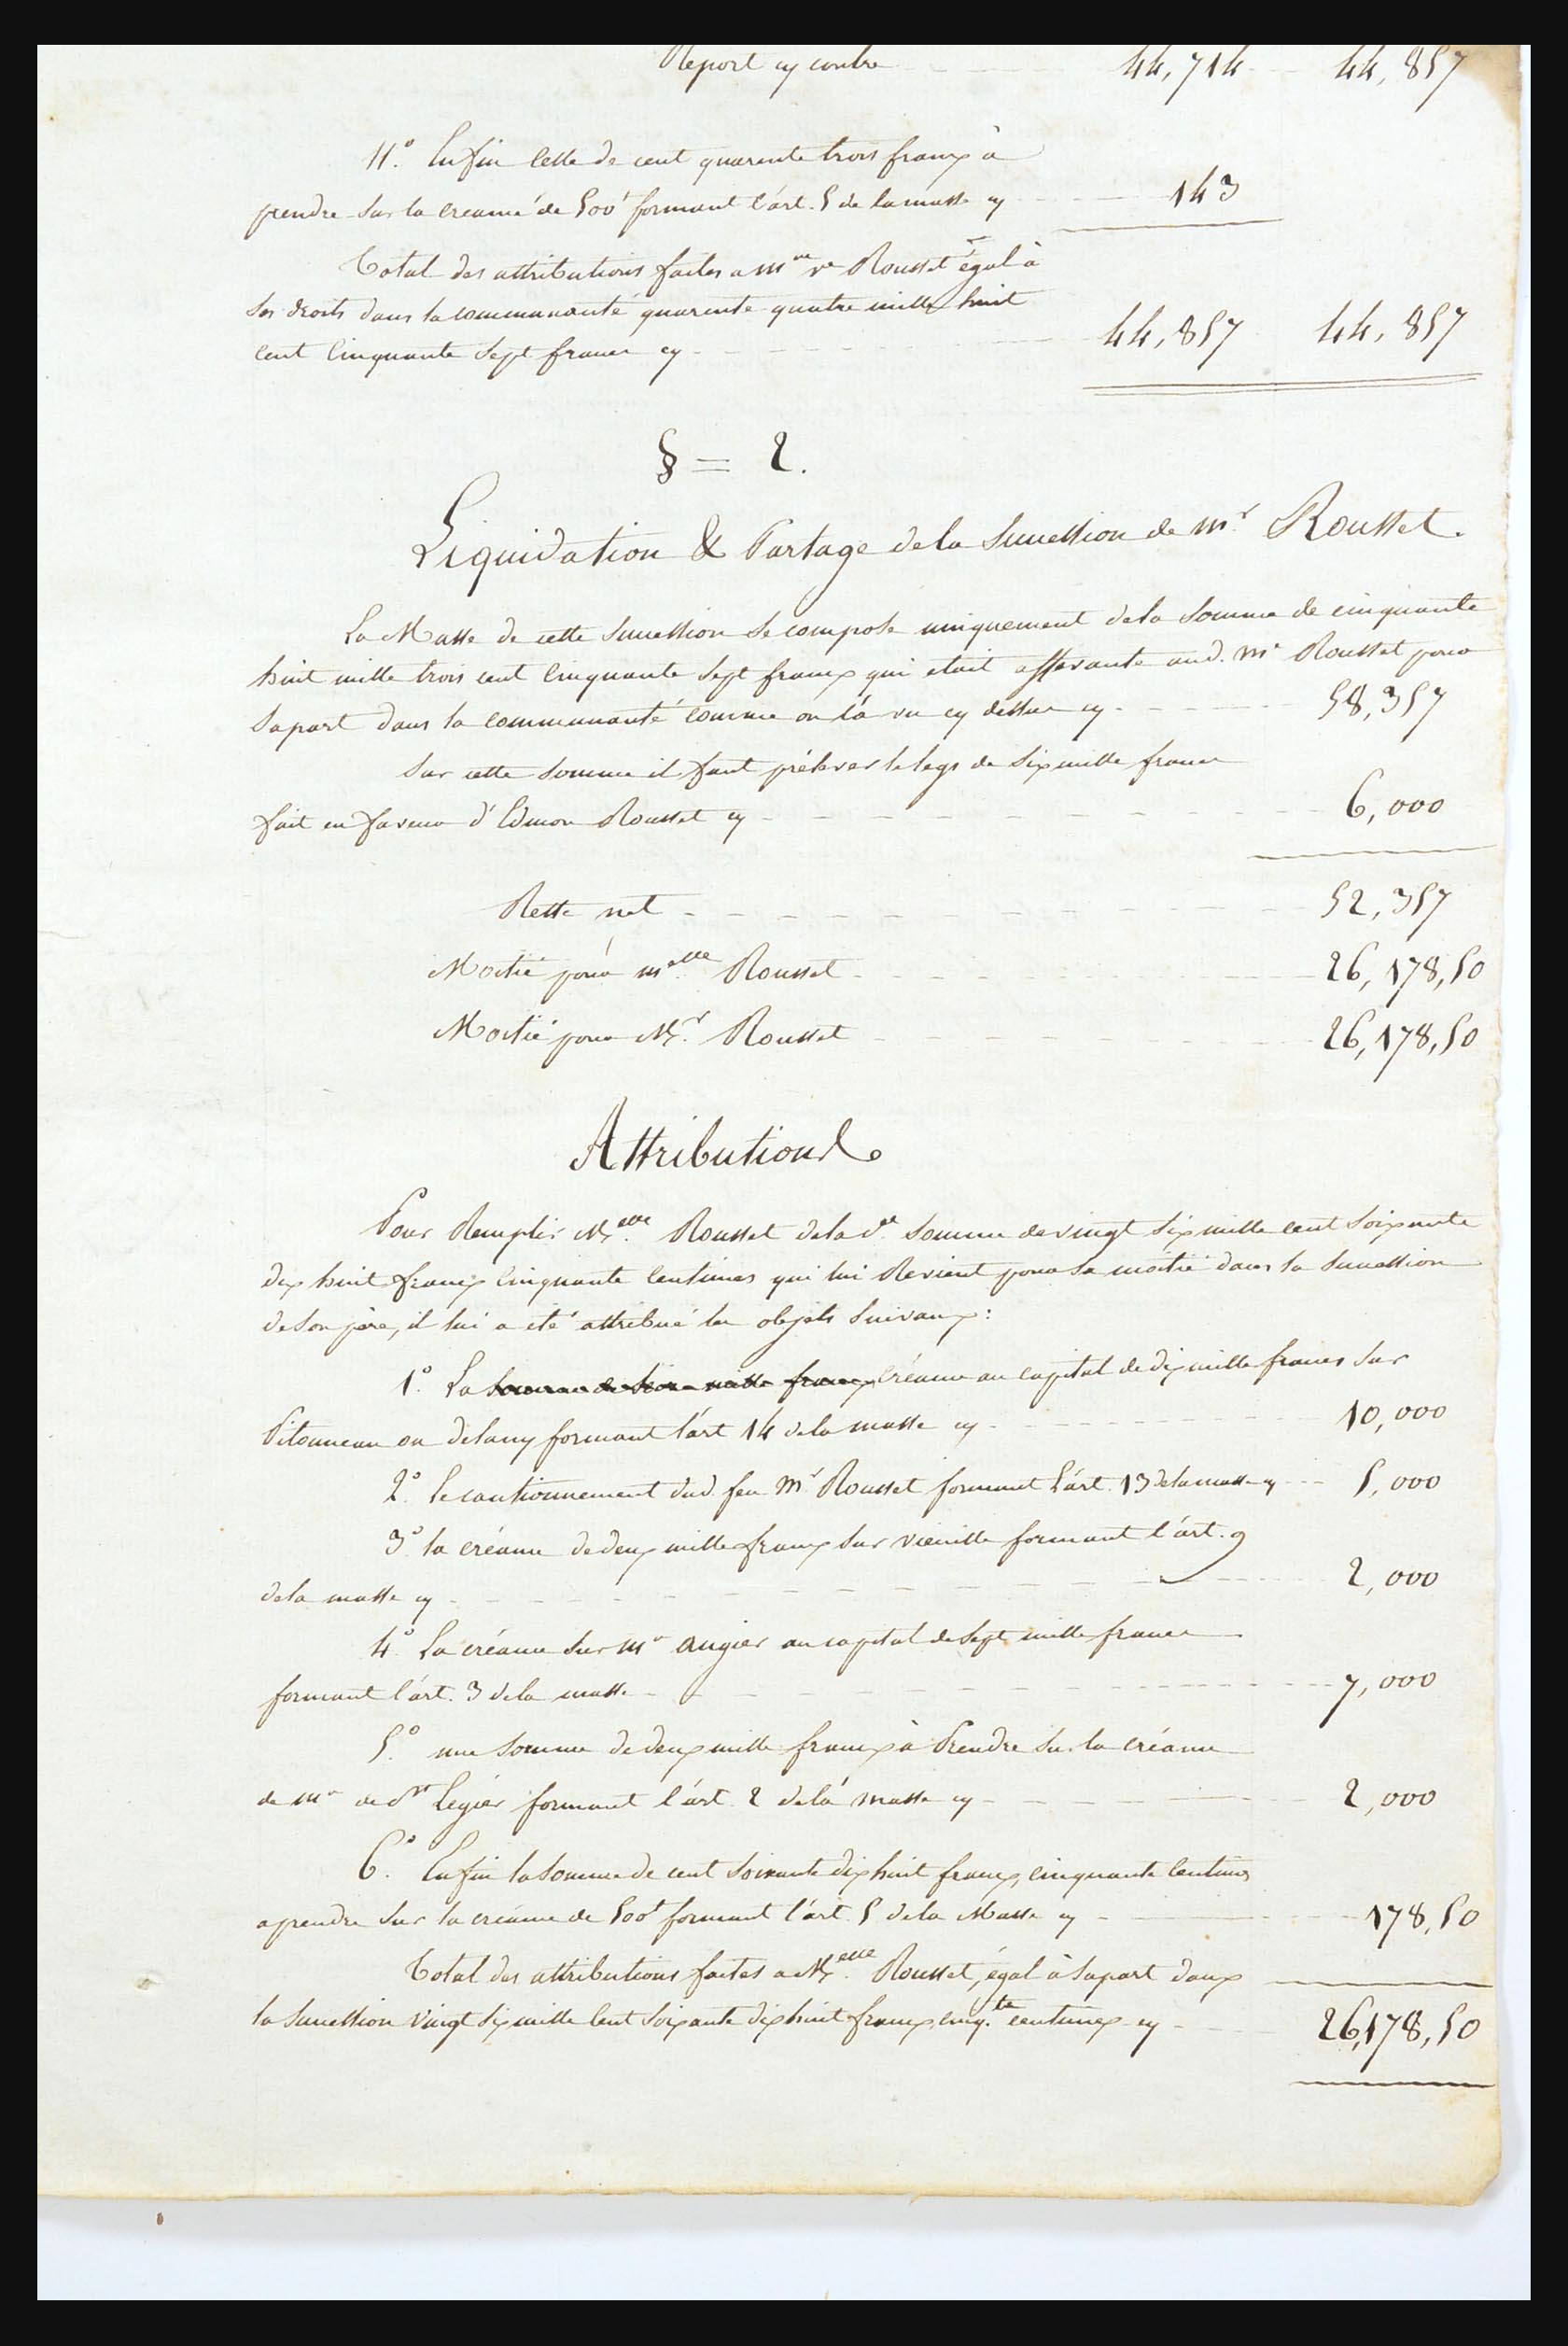 Report cy contre 44,714 44,857
11.° Enfin celle de cent quarente trois franx à
prendre sur la creance de 500f formant l'art. 5 de la masse cy 143
Total des attributions faites a Mme ve Rousset égal à
ses droits dans la communauté quarente quatre mille huit
cent cinquante sept francs cy 44,857 44,857
§ = 2.
Liquidation & Partage de la Succession de Mr. Rousset.
La Masse de cette succession se compose uniquement de la somme de cinquante
huit mille trois cent cinquante sept franx qui était afférante aud. Mr Rousset pour
sa part dans la communauté comme on l'a vu cy dessus cy 58,357
Sur cette somme il faut prélever le legs de six mille francs
fait en faveur d'Edmon Rousset cy 6,000
Reste net 52,357
Moitié pour Melle Rousset 26,178,50
Moitié pour Mr. Rousset 26,178,50
Attributions
Pour Remplir Melle. Rousset de la de somme de vingt six mille cent soixante
dix huit franx cinquante centimes qui lui Revient pour sa moitié dans la succession
de son père, il lui a été attribué les objets suivanx :
1.° La somme de mille franx créance au capital de dix mille francs sur
Pitonneau ou Delany formant l'art 14 de la masse cy 10,000
2.° le cautionnement dud. feu Mr Rousset formant l'art. 13 de la masse cy 5,000
3.° la créance de deux mille franx sur vieuille formant l'art. 9
de la masse cy 2,000
4.° La créance sur Mr Augier au capital de sept mille francs
formant l'art. 3 de la masse 7,000
5.° une somme de deux mille franx à Prendre sur la créance
de Mr de St Légier formant l'art. 2 de la masse cy 2,000
6.° Enfin la somme de cent soixante dix huit franx, cinquante centimes
a prendre sur la créance de 500f formant l'art. 5 de la Masse cy 178,50
Total des attributions faites a Melle. Rousset, égal à sa part danx
la succession vingt six mille cent soixante dix huit franx, cinq.te centimes cy 26,178,50